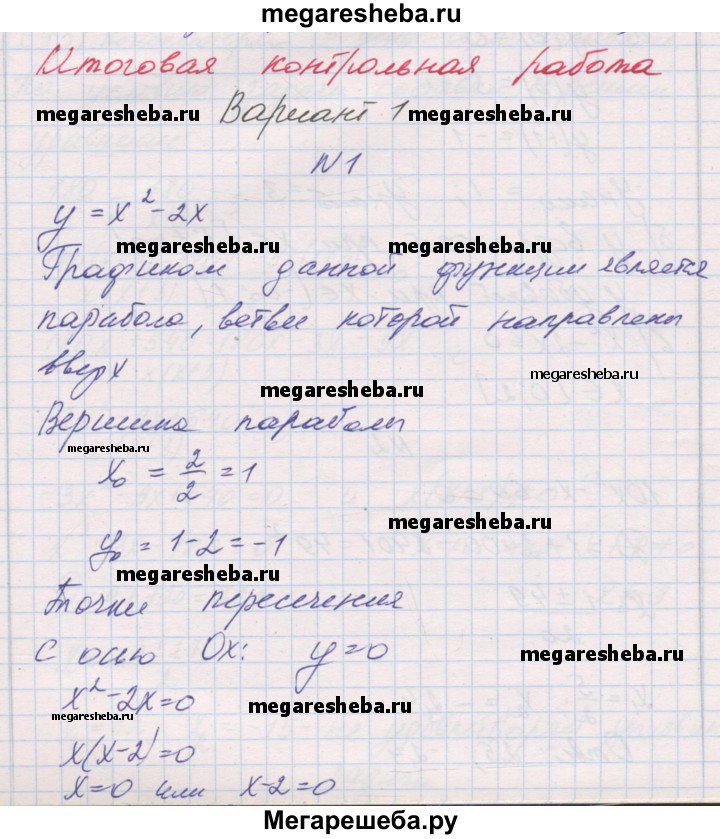 megaresheba.ru
Итоговая контрольная работа
megaresheba.ru Вариант 1 megaresheba.ru
N1
y = x² - 2x
megaresheba.ru megaresheba.ru
Графиком данной функции является
парабола, ветви которой направлены
вверх
megaresheba.ru
megaresheba.ru
Вершина параболы
megaresheba.ru
x₀ = 2/2 = 1
megaresheba.ru
y₀ = 1-2 = -1
megaresheba.ru
Точки пересечения
с осью Ox: y=0
megaresheba.ru
x²-2x=0
megaresheba.ru
megaresheba.ru
x(x-2)=0
x=0 или x-2=0
Мегарешеба.ру